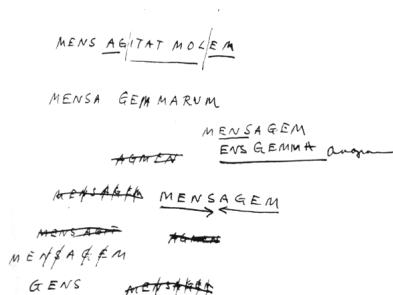 MENS AG/ITAT MOL/EM
MENSA GEMMARUM
MENSAGEM
ENS GEMMA
AGMEN
MENSAGEM MENSAGEM
MENSAGE AGMEN
MENSAGEM
GENS MENSAGEM